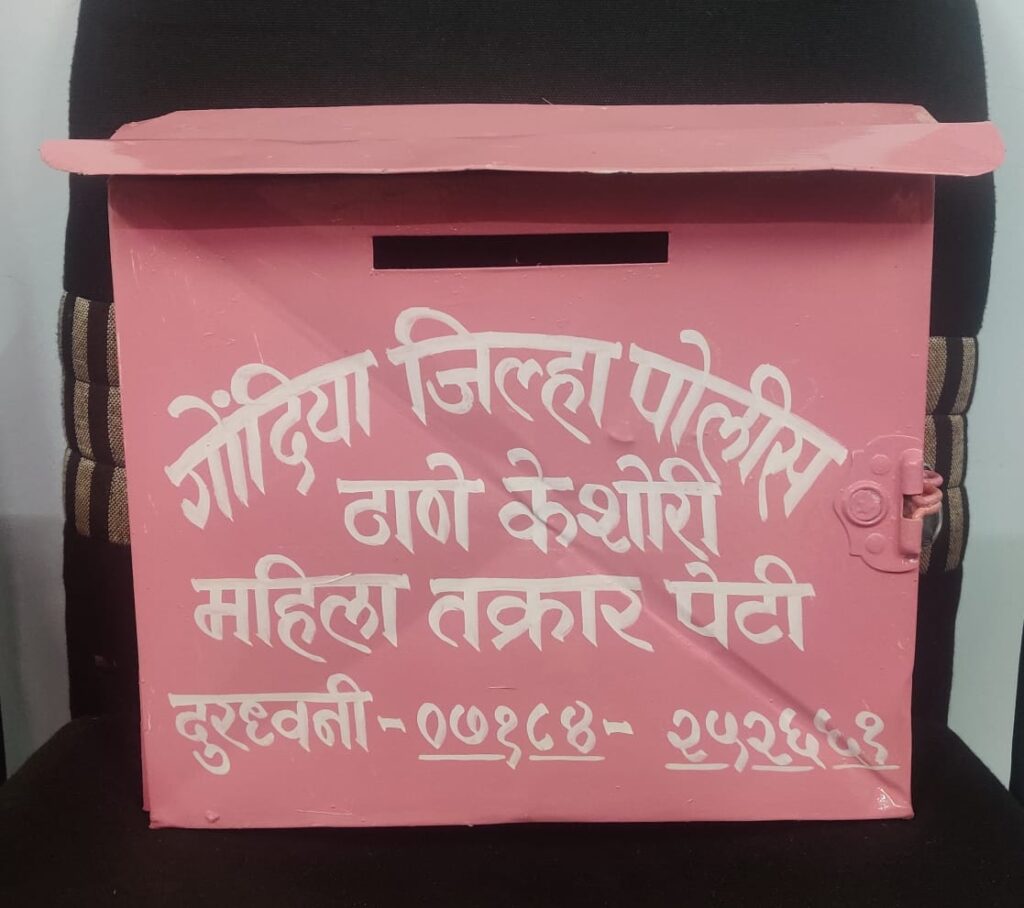 गोंदिया जिल्हा पोलीस
ठाणे केशोरी
महिला तक्रार पेटी
दुरध्वनी - ०७१८४ -